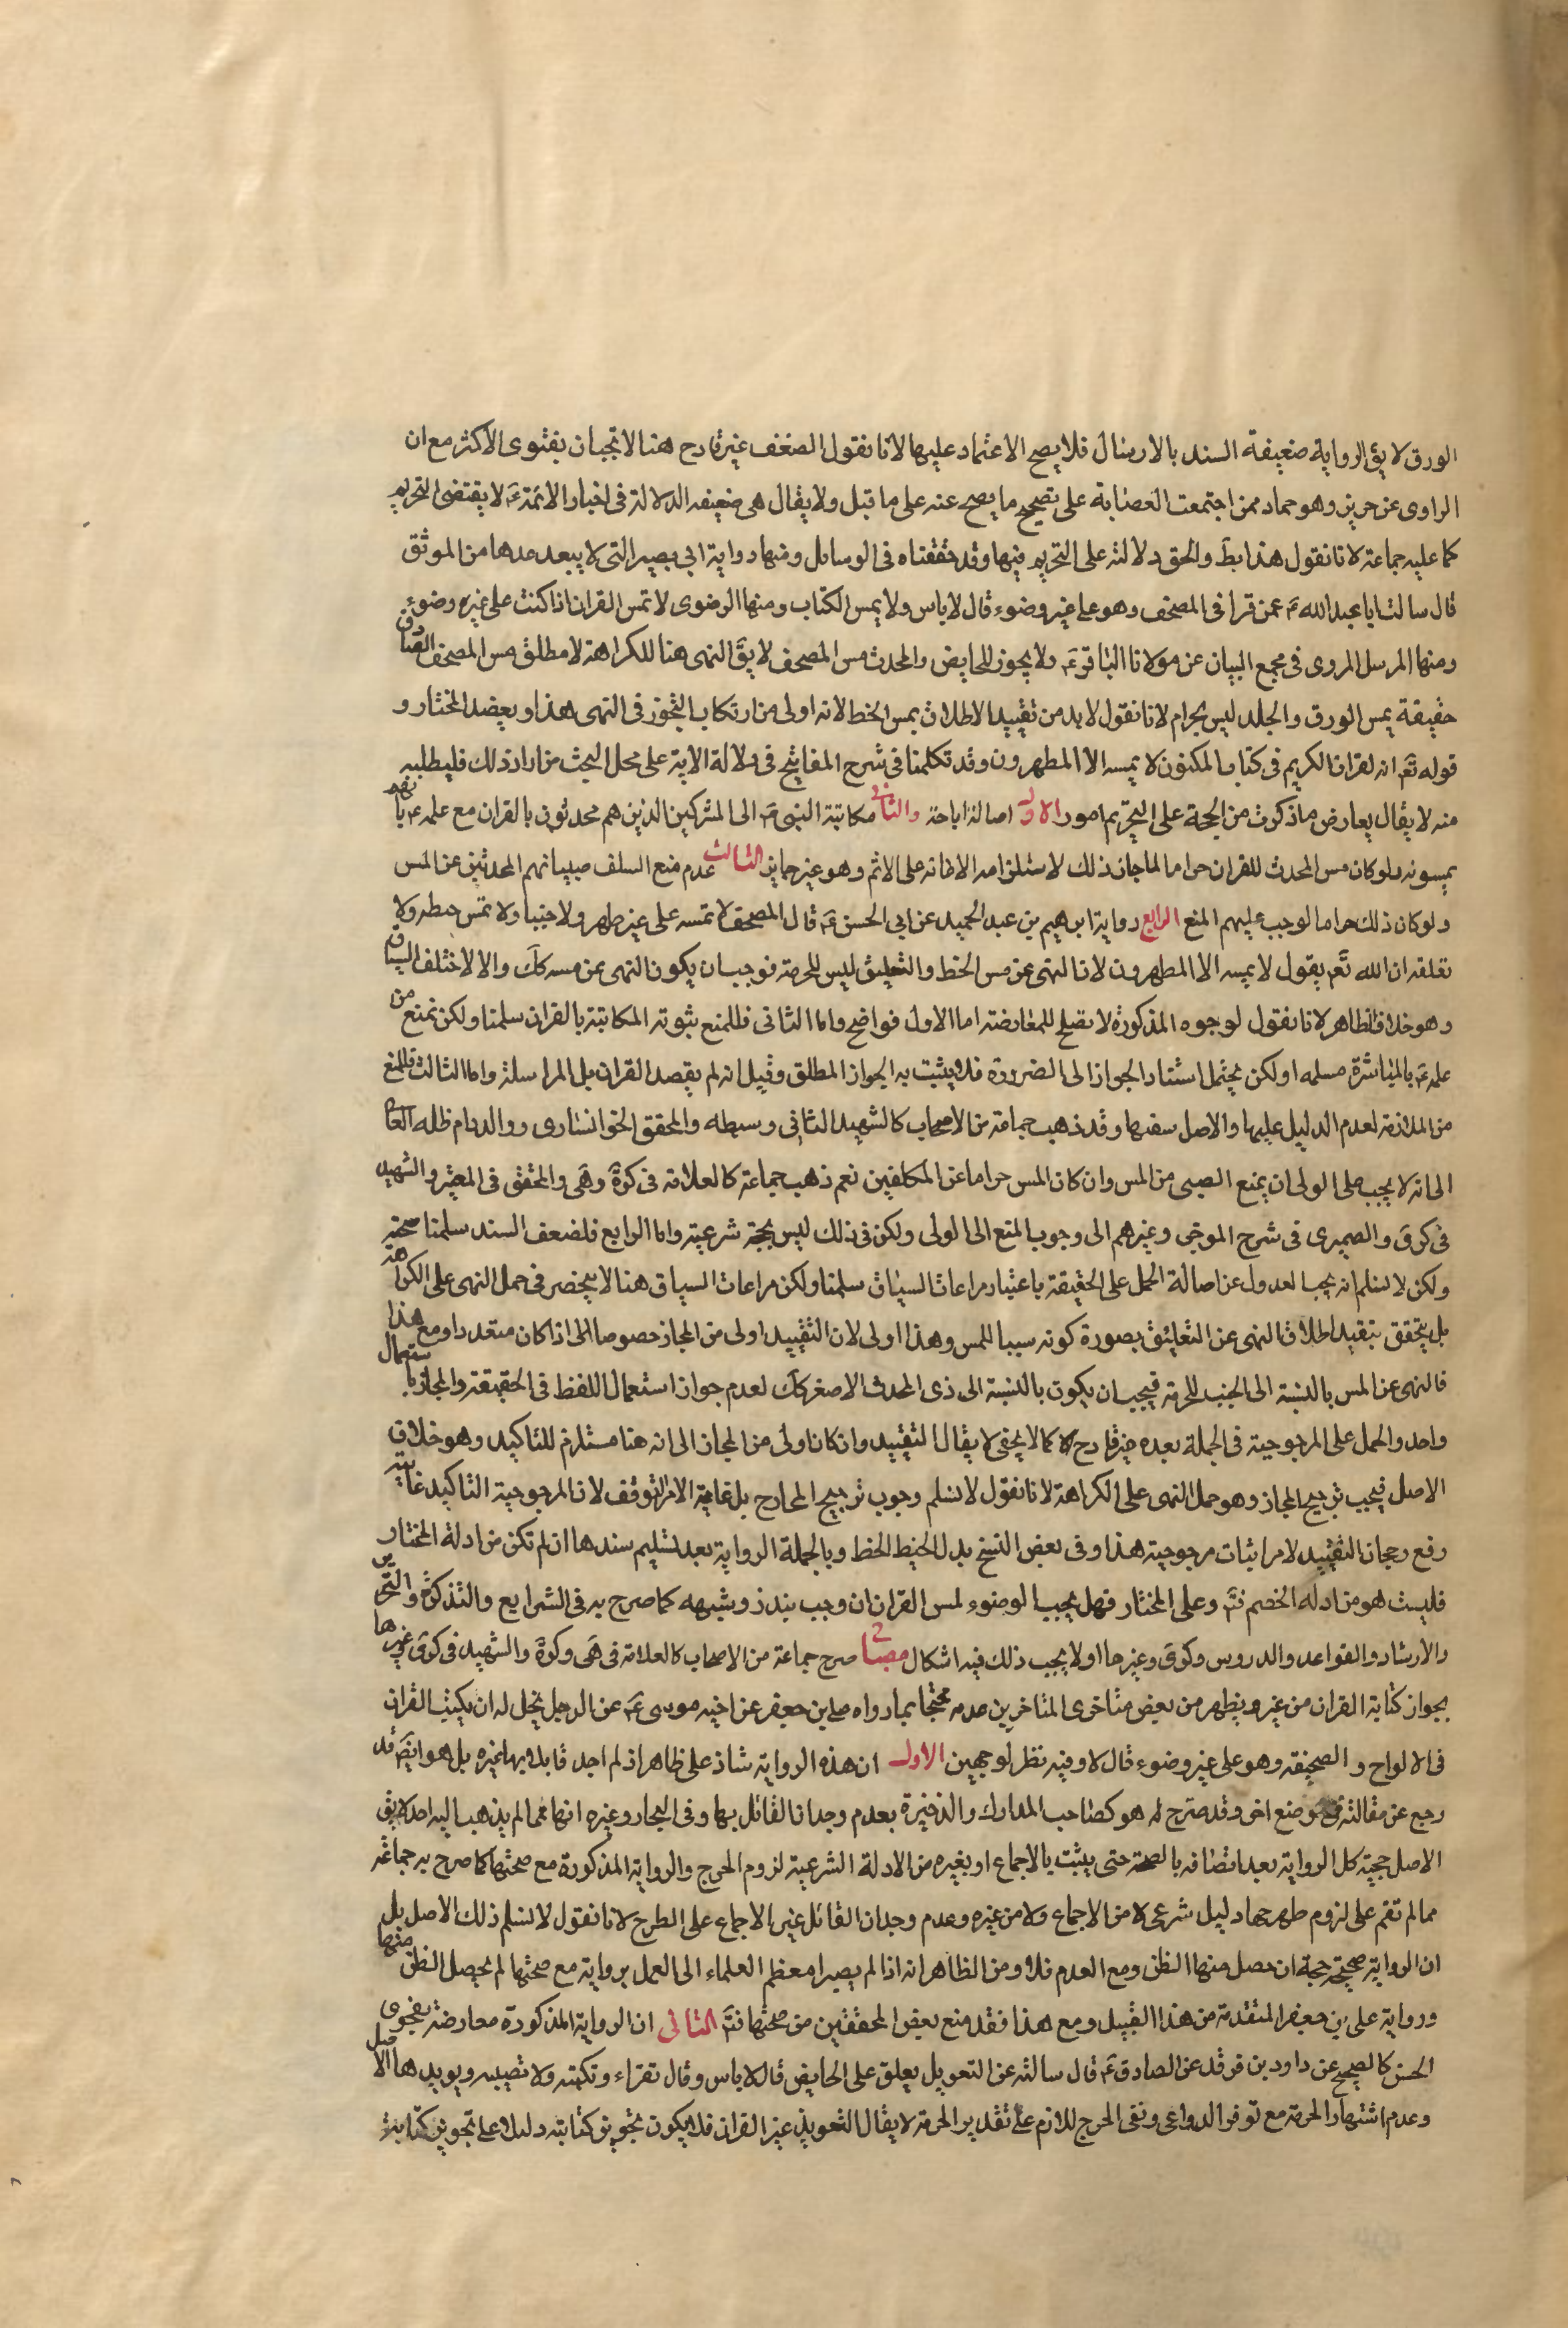 الورق لا يق الرواية ضعيفة السند بالارسال فلا يصح الاعتماد عليها لانا نقول الضعف غير قادح هنا لانجبان بفتوى الاكثر مع ان
الراوى عن حريز وهو حماد ممن اجتمعت العصابة على تصحيح ما يصح عنه على ما قيل ولا يقال هى ضعيفه الدلالة فى اخبار الائمة ع لا يقتضى التحريم
كما عليه جماعة لانا نقول هذا بط والحق دلالته على التحريم فيها وقد حققناه فى الوسائل ومنها رواية ابى بصير التى لا يبعد عدها من الموثق
قال سالت ابا عبد الله ع عمن قرا فى المصحف وهو على غير وضوء قال لا باس ولا يمس الكتاب ومنها الرضوى لا تمس القران اذا كنت على غير وضوء
ومنها المرسل المروى فى مجمع البيان عن مولانا الباقر ع ولا يجوز للحايض والمحدث مس المصحف لا يق النهى هنا للكراهة لا مطلق مس المصحف الصادق
حقيقة بمس الورق والجلد ليس بحرام لانا نقول لا بد من تقييد الاطلاق بمس الخط لانه اولى من ارتكاب التجوز فى النهى هذا ويعضد المختار و
قوله تع انه لقران الكريم فى كتاب المكنون لا يمسه الا المطهرون وقد تكلمنا فى شرح المفاتيح فى دلالة الاية على محل البحث من اراد ذلك فليطلبه
منه لا يقال يعارض ما ذكرت من الحجة على التحريم امور الاول اصالة اباحة والثانى مكاتبة النبى ص الى المشركين الذين هم محدثون بالقران مع علمه ع بانهم
يمسونه ولو كان مس المحدث للقران حراما لما جاز ذلك لاستلزامه الاعانه على الاثم وهو غير جايز الثالث عدم منع السلف صبيانهم المحدثين عن المس
ولو كان ذلك حراما لوجب عليهم المنع الرابع رواية ابرهيم بن عبد الحميد عن ابى الحسن ع قال المصحف لا تمسه على غير طهر ولا جنبا ولا تمس خيطه ولا
تعلقه ان الله تع يقول لا يمسه الا المطهرون لان النهى عن مس الخط والتعليق ليس للحرمة فوجب ان يكون النهى عن مسه كك والا لاختلف السياق
وهو خلاف الظاهر لانا نقول الوجوه المذكورة لا تصلح للمعارضته اما الاول فواضح واما الثانى فللمنع بثبوته المكاتبة بالقران سلمنا ولكن نمنع من
علمه ع بالمباشرة مسلمه او لكن يحتمل استناد الجواز الى الضرورة فلا يثبت به الجواز المطلق وقيل انه لم يقصد القران بل المراسلة واما الثالث فللمنع
من الملازمة لعدم الدليل عليها والاصل نفيها وقد ذهب جماعة من الاصحاب كالشهيد الثانى وسبطه والمحقق الخوانسارى ووالد دام ظله العالى
الى انه لا يجب على الولى ان يمنع الصبى من المس وان كان المس حراما عن المكلفين نعم ذهب جماعة كالعلامة فى كرة وهى والمحقق فى المعتبر والشهيد
فى كرى والصميرى فى شرح الموجز وغيرهم الى وجوب المنع الى الولى ولكن فى ذلك ليس بحجة شرعية واما الرابع فلضعف السند سلمنا صحته
ولكن لا نسلم انه يجب العدول عن اصالة الحمل على الحقيقة باعتبار مراعات السياق سلمنا ولكن مراعات السياق هنا لا ينحصر فى حمل النهى على الكراهة
بل يتحقق بتقييد اطلاق النهى عن التعليق بصورة كونه سببا للمس وهذا اولى لان التقييد اولى من المجاز خصوصا الى اذا كان متعددا ومع هذا
فالنهى عن المس بالنسبة الى الجنب للحرمة فيجب ان يكون بالنسبة الى ذى المحدث الاصغر كك لعدم جواز استعمال اللفظ فى الحقيقة والمجاز باستعمال
واحد والحمل على المرجوحية فى الجملة بعده غير قادح كما لا يخفى لا يقال التقييد وان كان اولى من المجاز الى انه هنا مستلزم للتاكيد وهو خلاف
الاصل فيجب ترجيح المجاز وهو حمل النهى على الكراهة لانا نقول لا نسلم وجوب ترجيح المجازح بل غاية الامر التوقف لان المرجوحية التاكيد غايته
رفع رجحان التقييد لامر اثبات مرجوحيته هذا وفى بعض النسخ بدل الخيط الخط وبالجملة الرواية بعد تسليم سندها ان لم تكن من ادلة المختار
فليست هو من ادلة الخصم فتم وعلى المختار فهل يجب الوضوء لمس القران ان وجب بنذر وشبهه كما صرح به فى الشرايع والتذكرة والتحرير
والارشاد والقواعد والدروس وكرى وغيرها او لا يجب ذلك فيه اشكال مصباح صرح جماعة من الاصحاب كالعلامة فى هى وكرة والشهيد فى كرى وغيرها
بجواز كتابة القران من غير ويظهر من بعض متاخرى المتاخرين عدمه محتجا بما رواه على بن جعفر عن اخيه موسى ع عن الرجل يحل له ان يكتب القران
فى الالواح و الصحيفة وهو على غير وضوء قال لا وفيه نظر لوجهين الاول ان هذه الرواية شاذ على ظاهر اذ لم اجد قائلا بها غيره بل هو ايض قد
رجع عن مقالته فى موضع اخر وقد صرح له هو كصاحب المدارك والذخيرة بعدم وجدانا لقائل بها وفى البحار وغيره انها مما لم يذهب اليه احد لا يق
الاصل حجية كل الرواية بعد اتصافه بالصحة حتى يثبت بالاجماع او بغيره من الادلة الشرعية لزوم الحرج والرواية المذكورة مع صحتها كما صرح به جماعة
مما لم تقم على لزوم طرحها دليل شرعى لا من الاجماع ولا من غيره وعدم وجدان القائل غير الاجماع على الطرح لانا نقول لا نسلم ذلك الاصل بل
ان الرواية صحيحة حجة ان حصل منها الظن ومع العدم فلا ومن الظاهر انه اذا لم يصير معظم العلماء الى العمل برواية مع صحتها لم يحصل الظن منها
ورواية على بن جعفر المتقدمة من هذا القبيل ومع هذا فقد منع بعض المحققين من صحتها فتم الثانى ان الرواية المذكورة معارضة بفحوى
الحسن كالصحيح عن داود بن فرقد عن الصادق ع قال سالته عن التعويذ يعلق على الحايض قال لا باس وقال تقراء وتكتبه ولا تصيبه ويويدها الاصل
وعدم اشتهار الحرمة مع توفر الدواعى ونفى الحرج اللازم على تقدير الحرمة لا يقال التعويذ غير القران فلا يكون تجويز كتابته دليلا على تجويز كتابته